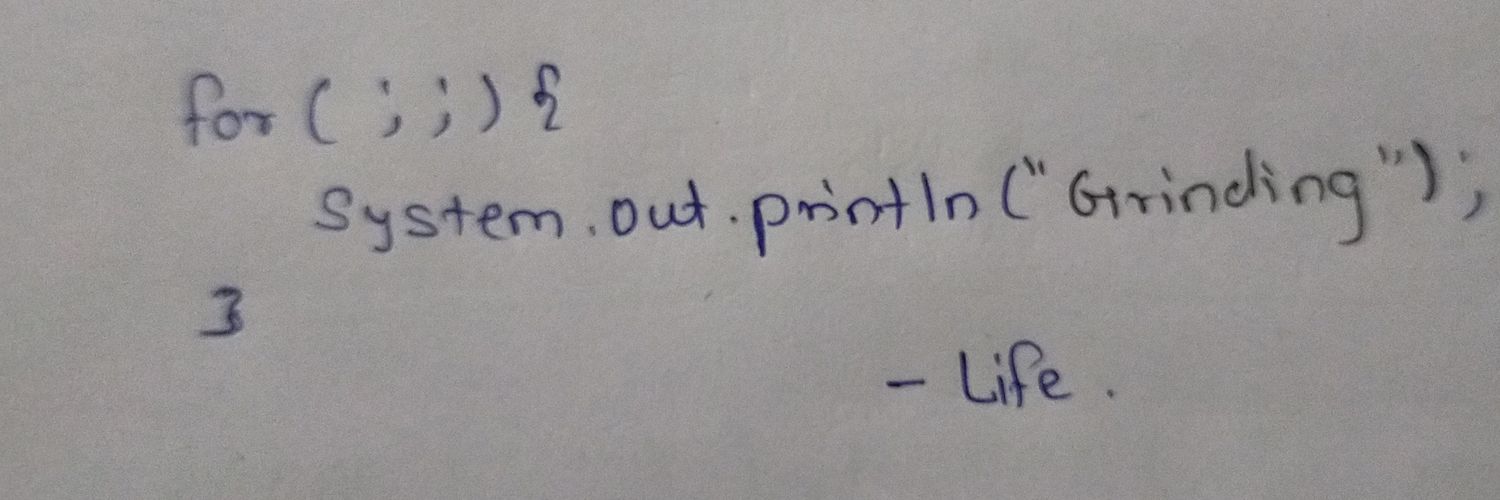 for ( ; ; ) {
System.out.println ("Grinding");
}
- Life.